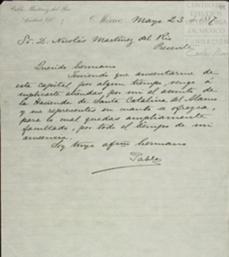 Pablo Martínez del Río
México, Mayo 23 de 1887
Sr. D. Nicolás Martínez del Río
Presente
Querido hermano
Teniendo que ausentarme de
esta capital por algún tiempo, vengo á
suplicarte atiendas por mi el asunto de
la Hacienda de Santa Catalina del Alamo
y me representes en cuanto se ofrezca,
para lo cual quedas ampliamente
facultado, por todo el tiempo de mi
ausencia.
Soy tuyo afmo hermano
Pablo